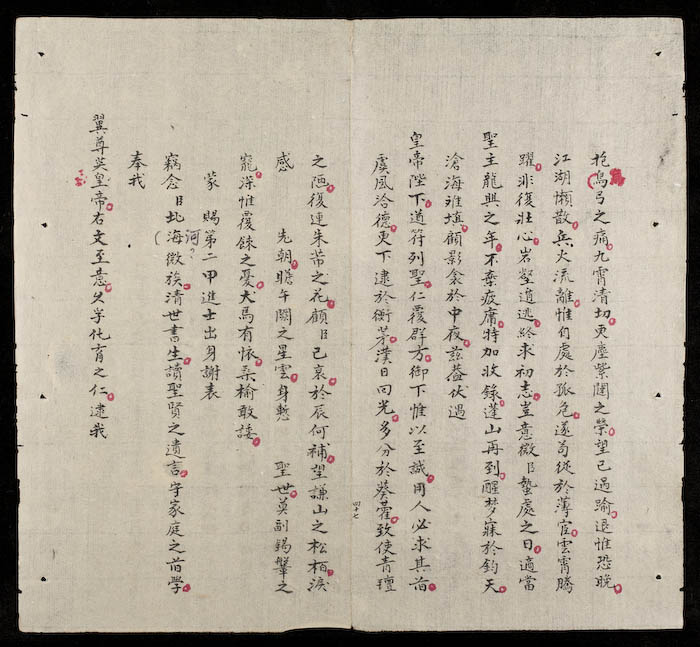 抱烏弓之痛九霄清切更塵紫闥之榮望已過踰退惟恐晚
江湖懶散兵火流離惟自處於孤危遂苟從於薄宦雲霄騰
躍非復壯心岩壑逍遥終求初志豈意微臣蟄處之日適當
聖主龍興之年不棄疲庸特加收錄蓬山再到醒梦寐於鈞天
滄海難填顧影衾於中夜茲蓋伏遇
皇帝陛下道符列聖仁覆群方御下惟以至誠用人必求其旧
虞風洽德更下逮於衡茅漢日回光多分於葵藿致使青璮
四十七
之陋復連朱芾之花顧臣已哀於辰何補望謙山之松栢淚
感 先朝瞻午闕之星雲身慙 聖世莫副錫鞶之
寵深惟覆餗之憂犬馬有懷桑榆敢諼
蒙 賜第二甲進士出身謝表
河?
竊念臣北海微族清世書生讀聖賢之遺言守家庭之旧學
奉我
翼尊英皇帝右文至意父字化育之仁逮我